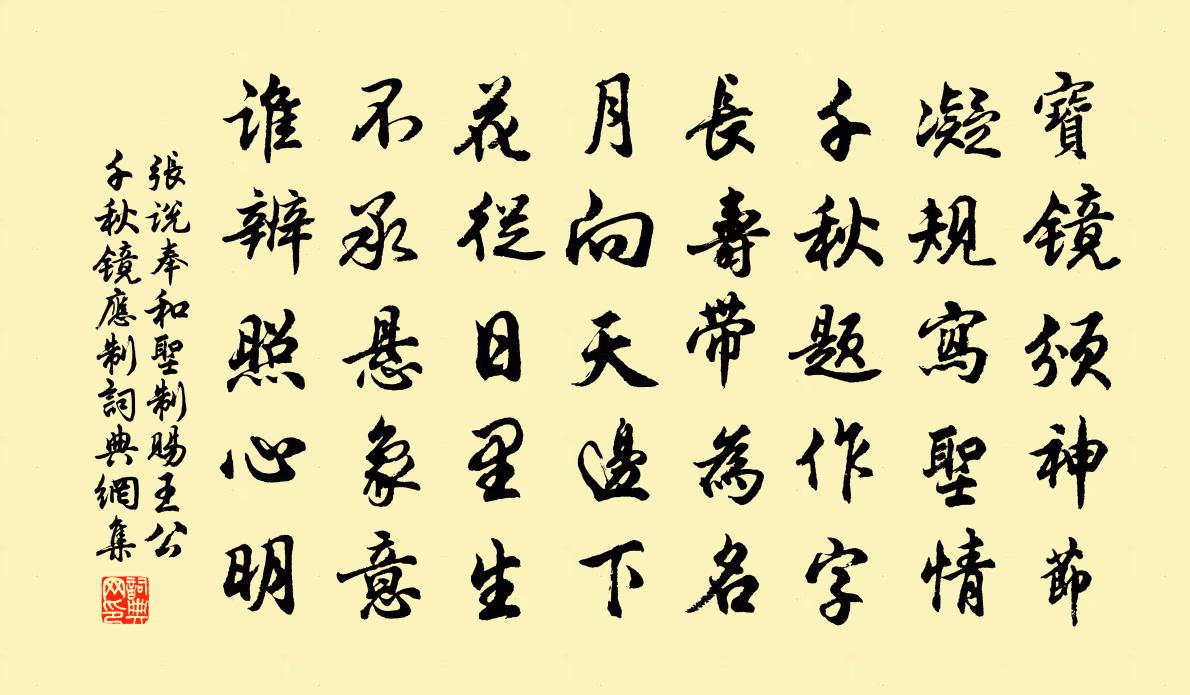 寶镜颁神節
凝规寫聖情
千秋题作字
長壽带為名
月向天邊下
花從日里生
不承悬象意
谁辨照心明
張说奉和聖制赐王公
千秋镜應制詞典網集
詞典网印